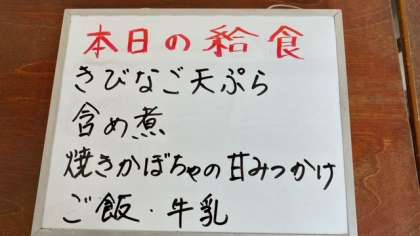 本日の給食
きびなご天ぷら
含め煮
焼きかぼちゃの甘みつかけ
ご飯・牛乳